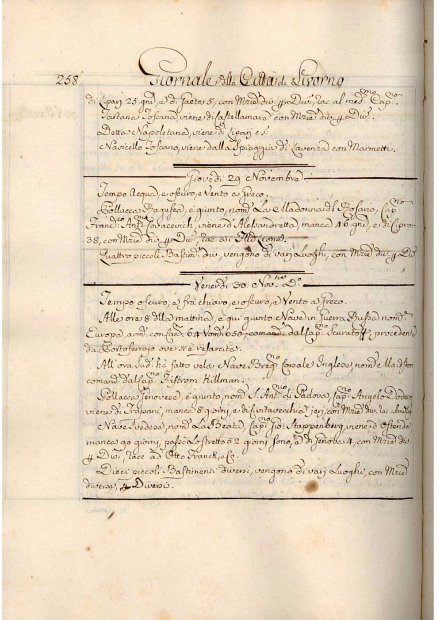 258.
Giornale della Città di Livorno
di Lipari 25. gni, e di Gaeta 5, con Mrcie div. p Div. rac. al med.mo Cap.o
Tartana Toscana, viene da Castellamare con Mrcie div. p Div.
Detta Napoletana, viene di Lipari c. s.
Navicello Toscano, viene dalla Spiaggia di Lavenza con Marmette.
Giovedi 29 Novembre
Tempo Acqua, e oscuro, e Vento a Greco.
Pollacca Ragusea, è giunto, nom. La Madonna del Rosario, Cap.o
Franc.o Ant. Covacevich, viene d'Alexandretta, manca 46 gni, e di Cipro
38, con Mrcie div. p Div. rac. a
Quattro piccoli Bastim. div. vengono di varj Luoghi, con Mrcie div. p Div.
Venerdi 30. Nov.bre D.o
Tempo oscuro, e frà chiaro, e oscuro, e Vento a Greco.
Alle ore 8 della mattina, è qui giunto Nave in Guerra Russa nom.
Europa, arm. con Can. 64 Uom. 650, comand. dal Cap.o procedente
da Portoferrajo ove si è risarcita.
All'ora sud. hà fatto vela Nave Inglese, nom.
comand. dal Cap.o Hillman.
Pollacca Genovese, è giunto, nom. S. Ant.o di Padova, Cap.o Angelo
viene di Trapani, manca 8 gorni, e di Civitavecchia jeri, con Mrcie div. rac.
Nave Svedese, nom. La Beata, Cap.o Gio: Stappenberg, viene d'Ostenda
manca 90 giorni, passò lo stretto 52 giorni sono, e di Genova 4, con Mrcie div.
p Div. racc. ad Otto Franck, e C.
Dieci piccoli Bastimenti diversi, vengono di varj Luoghi, con Mrcie
diverse, p Diversi.